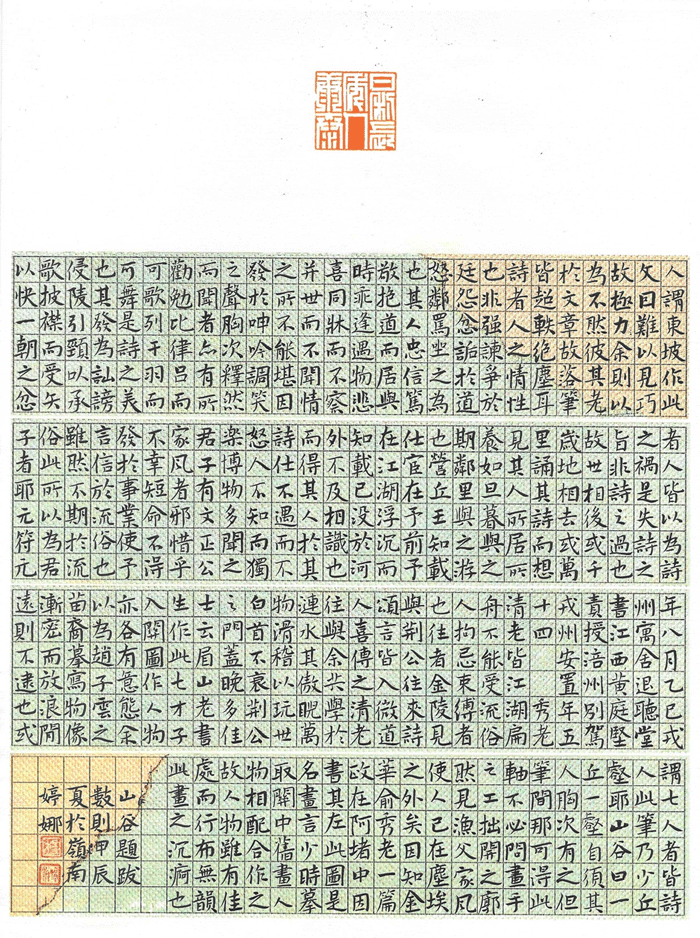 人謂東坡作此
文曰難以見巧
故極力余則以
為不然彼其老
於文章故落筆
皆超軼絕塵耳
詩者人之情性
也非强諫爭於
廷怨忿詬於道
怒鄰罵坐之為
也其人忠信篤
敬抱道而居與
時乖逢遇物悲
喜同牀而不察
并世而不聞情
之所不能堪因
發於呻吟調笑
之聲胸次釋然
而聞者亦有所
勸勉比律呂而
可歌列干羽而
可舞是詩之美
也其發為訕謗
侵陵引頸以承
歌披襟而受矢
以快一朝之忿
者人皆以為詩
之禍是失詩之
旨非詩之過也
故世相後或千
歲地相去或萬
里誦其詩而想
見其人所居所
養如旦暮與之
期鄰里與之游
也營丘王知載
仕宦在予前予
在江湖浮沉而
知載已沒於河
外不及相識也
而得其人於其
詩仕不遇而不
怒人不知而獨
樂博物多聞之
君子有文正公
家風者邪惜乎
不幸短命不得
發於事業使予
言信於流俗也
雖然不期於流
俗此所以為君
子者耶元符元
年八月乙巳戎
州寓舍退聽堂
書江西黃庭堅
責授涪州別駕
戎州安置年五
十四 秀老
清老皆江湖扁
舟不能受流俗
人拘忌束縛者
也往者金陵見
與荊公往來詩
頌言皆入微道
人喜傳之清老
往與余共學於
漣水其傲睨萬
物滑稽以玩世
白首不衰荊公
之門蓋晚多佳
士云眉山老書
生作此七才子
入關圖作人物
亦各有意態余
以為趙子雲之
苗裔摹寫物像
漸密而放浪閒
遠則不逮也或
謂七人者皆詩
人此筆乃少丘
壑耶山谷曰一
丘一壑自須其
人胸次有之但
筆間那可得此
軸不必問畫手
之工拙開之廓
然見漁父家風
使人已在塵埃
之外矣因知金
華俞秀老一篇
政在阿堵中因
書其左此圖
名畫言少時摹
取關中舊畫人
物相配合作之
故人物雖有佳
處而行布無韻
此畫之沉痾也
山谷題跋
數則甲辰
夏於嶺南
婷娜